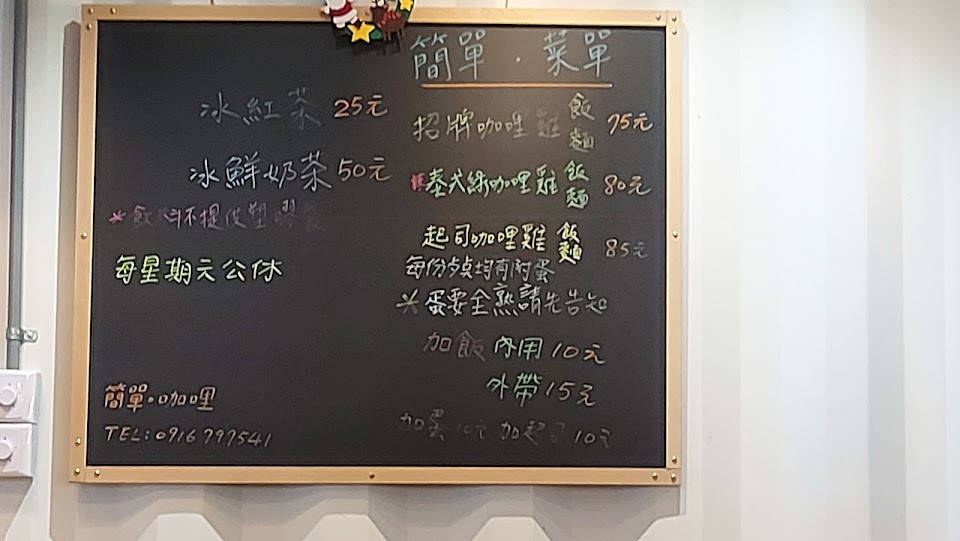 簡單．菜單
冰紅茶 25元
冰鮮奶茶 50元
*飲料不提供塑膠袋
每星期六公休
簡單．咖哩
TEL:0916797541
招牌咖哩雞 飯 麵 75元
泰式綠咖哩雞 飯 麵 80元
起司咖哩雞 飯 麵 85元
每份餐均有附蛋
*蛋要全熟請先告知
加飯 內用 10元
外帶 15元
加蛋 10元 加起司 10元